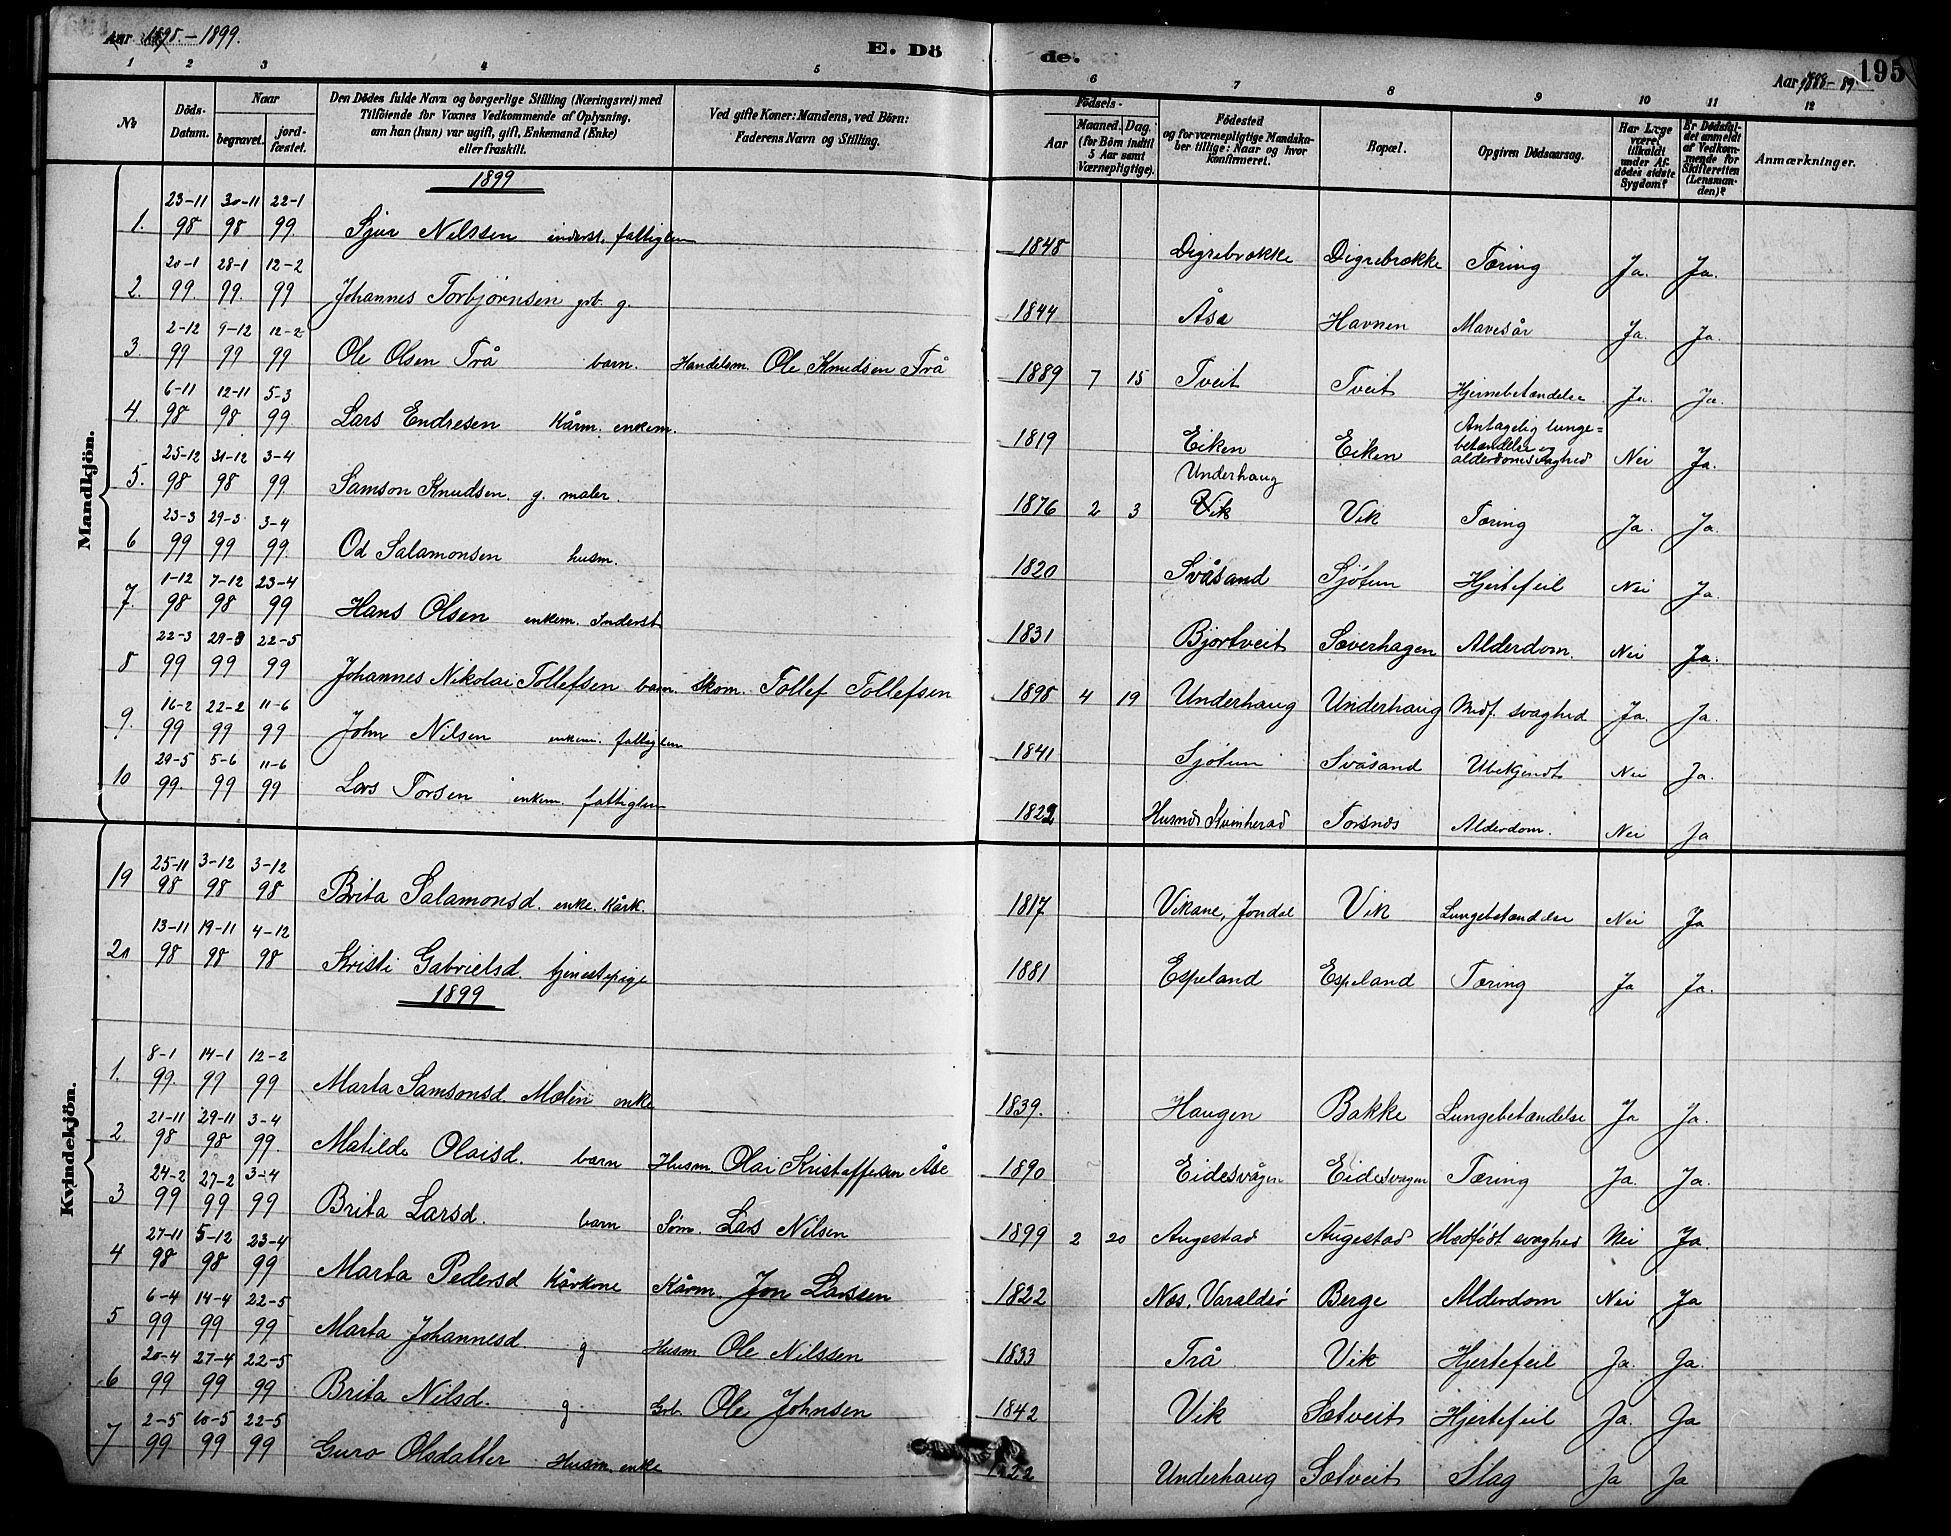 Aar 1898.-1899.
E. Dö
de.
Aar 1888-89
195
1 2 3 4 5 6 7 8 9 10 11 12
No
Döds-Datum.
Naar
begravet.
jord-fæstet.
Den Dödes fulde Navn og borgerlige Stilling (Næringsvei) med
Tilföiende for Voxnes Vedkommende af Oplysning,
om han (hun) var ugift, gift, Enkemand (Enke)
eller fraskilt.
Ved gifte Koner: Mandens, ved Börn:
Faderens Navn og Stilling.
Födsels-
Aar
Maaned. Dag.
(for Börn indtil
5 Aar samt
Værnepligtige).
Födested
og for værnepligtige Mandska-
ber tillige: Naar og hvor
konfirmeret.
Bopæl.
Opgiven Dödsaarsag.
Har Læge
været
tilkaldt
under Af-
dödes sidste
Sygdom?
Er Dödsfal-
det anmeldt
af Vedkom-
mende for
Skifteretten
(Lensman-
den)?
Anmærkninger.
Mandkjön.
1899
1. 23-11 98 30-11 98 22-1 99 Sjur Nilssen inderst. fattiglem 1848 Digrebrække Digrebrække Tæring Ja. Ja.
2. 20-1 99. 28-1 99. 12-2 99 Johannes Torbjørnsen grb. g. 1844 Åse Havnen Mavesår Ja. Ja.
3 2-12 99 9-12 99 12-2 99 Ole Olsen Trå barn. Handelsm. Ole Knudsen Trå 1889 7 15 Tveit Tveit Hjernebetændelse Ja. Ja.
4. 6-11 98 12-11 98 5-3 99 Lars Endresen Kårm. enkem. 1819 Eiken Eiken Antagelig lunge=
betændelse og
alderdomssvaghed Nei Ja.
5. 25-12 98 31-12 98 3-4 99. Samson Knudsen. g. maler. 1876 2 3 Underhaug
Vik Vik Tæring Ja. Ja.
6 23-3 99 29-3 99 3-4 99. Od Salamonsen husm. 1820 Svåsand Sjøtun Hjertefeil Nei Ja.
7. 1-12 98 7-12 98 23-4 99 Hans Olsen enkem. Inderst 1831 Bjortveit Sæverhagen Alderdom. Nei Ja.
8 22-3 99 29-3 99 22-5 99 Johannes Nikolai Tollefsen barn. Skom. Tollef Tollefsen 1898 4 19 Underhaug Underhaug Medf. svaghed Ja. Ja.
9. 16-2 99 22-2 99 11-6 99 John Nilsen enkem. fattiglem 1841 Sjøtun Svåsand Ubekjendt Nei Ja.
10 29-5 99. 5-6 99 11-6 99 Lars Torsen enkem. fattiglem 1822 Husnes Kvinherad Torsnes Alderdom. Nei Ja
Kvindekjön.
19 25-11 98 3-12 98 3-12 98 Brita Salamonsd. enke. Kårk. 1817 Vikane, Jondal Vik Lungebetændelse Nei Ja
20 13-11 98 19-11 98 4-12 98 Kristi Gabrielsd. tjenestepige 1881 Espeland Espeland Tæring Ja Ja.
1899
1. 8-1 99. 14-1 99 12-2 99 Marta Samsonsd. Molin enke 1839. Haugen Bakke Lungebetændelse Ja Ja.
2 21-11 98 29-11 98 3-4 99. Matilde Olaisd. barn Husm. Olai Kristoffersen Åse 1890 Eidesvågen Eidesvagen Tæring Ja. Ja.
3 24-2 99 27-2 99 3-4 99 Brita Larsd. barn Søm. Lars Nilsen 1899 2 20 Augestad Augestad Medfødt svaghed Nei Ja.
4 27-11 98 5-12 98 23-4 99 Marta Pedersd Kårkone Kårm. Jon Larssen 1822 Nes, Varaldsø Berge Alderdom Nei Ja
5 6-4 99 14-4 99 22-5 99 Marta Johannesd. g Husm Ole Nilssen 1833 Trå Vik Hjertefeil Ja. Ja.
6 20-4 99 27-4 99 22-5 99 Brita Nilsd. g Grb. Ole Johnsen 1842 Vik Sætveit Hjertefeil Ja. Ja
7 2-5 99 10-5 99 22-5 99 Guro Olsdatter Husm. enke 1822 Underhaug Sætveit Slag Ja Ja